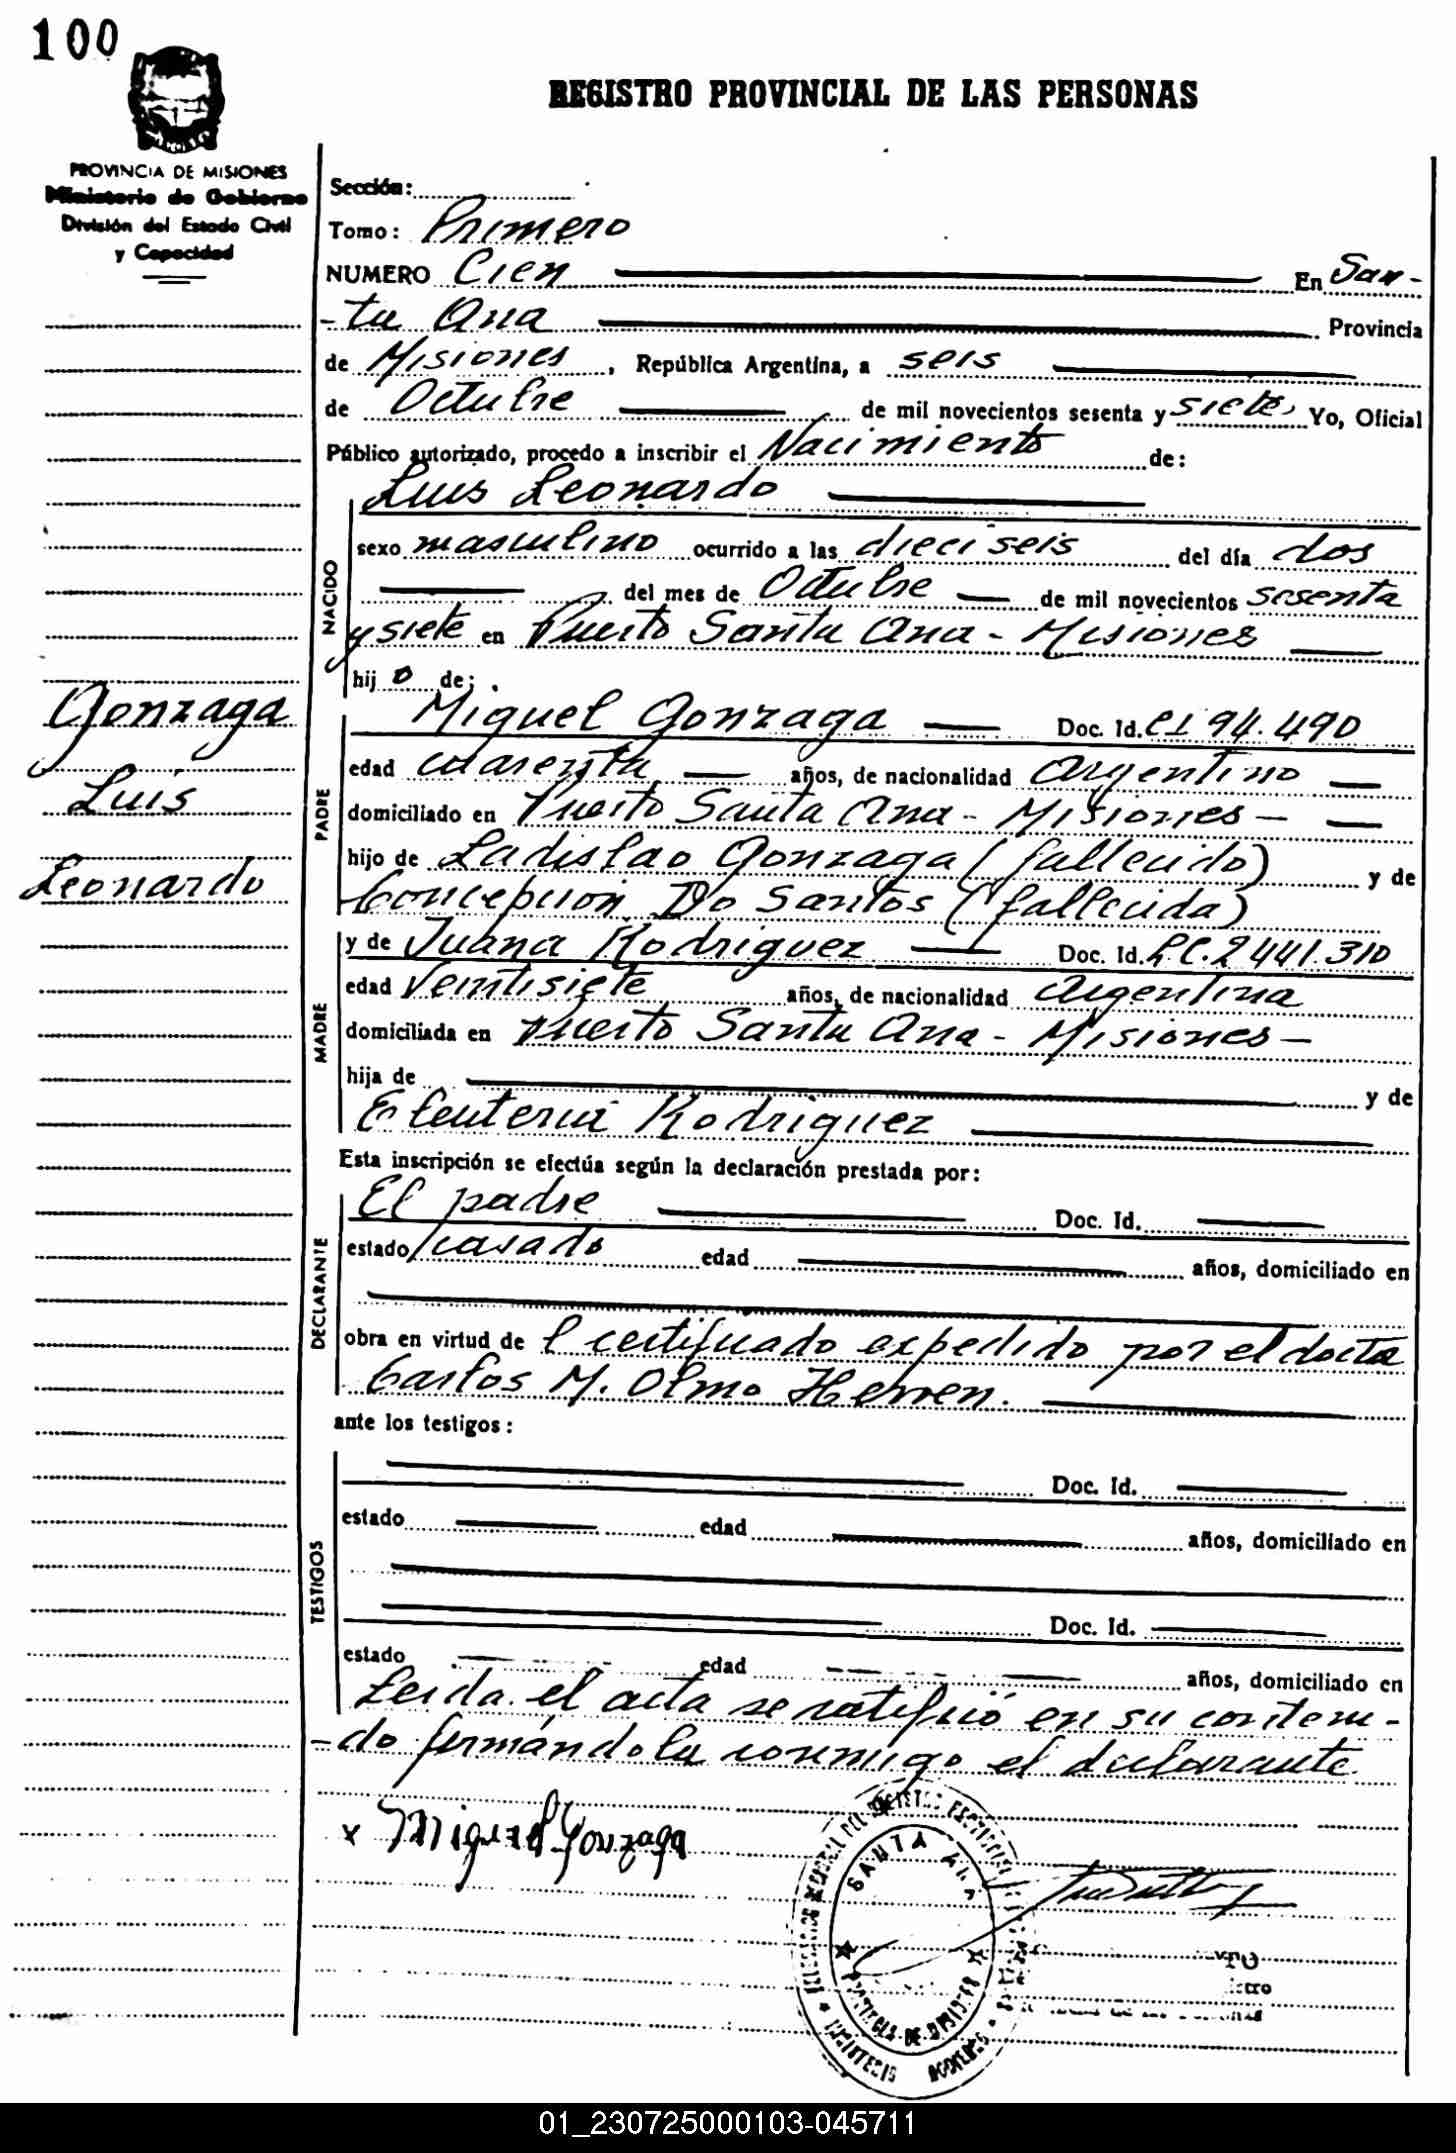 100
REGISTRO PROVINCIAL DE LAS PERSONAS
PROVINCIA DE MISIONES
Ministerio de Gobierno
División del Estado Civil
y Capacidad
Sección:
Tomo: Primero
NUMERO Cien En San-
-ta Ana Provincia
de Misiones, República Argentina, a seis
de Octubre de mil novecientos sesenta y siete, Yo, Oficial
Público autorizado, procedo a inscribir el Nacimiento de:
Luis Leonardo
NACIDO
sexo masculino ocurrido a las dieciseis del día dos
del mes de Octubre de mil novecientos sesenta
y siete en Puerto Santa Ana - Misiones
hijo de:
Gonzaga
Luis
Leonardo
PADRE
Miguel Gonzaga Doc. Id. CI 94.490
edad cuarenta años, de nacionalidad Argentino
domiciliado en Puerto Santa Ana - Misiones -
hijo de Ladislao Gonzaga (fallecido) y de
Concepción Do Santos (fallecida)
MADRE
y de Juana Rodriguez Doc. Id. L.C. 2441.310
edad Veintisiete años, de nacionalidad Argentina
domiciliada en Puerto Santa Ana - Misiones -
hija de y de
Eleuteria Rodriguez
Esta inscripción se efectúa según la declaración prestada por:
DECLARANTE
El padre Doc. Id.
estado casado edad años, domiciliado en
obra en virtud de l certificado expedido por el docta
Carlos M. Olmo Herren.
ante los testigos:
TESTIGOS
Doc. Id.
estado edad años, domiciliado en
Doc. Id.
estado edad años, domiciliado en
Leida el acta se ratificó en su conteni-
-do firmándola conmigo el declarante
x Miguel Gonzaga
SANTA ANA
PROVINCIA DE MISIONES
01_230725000103-045711